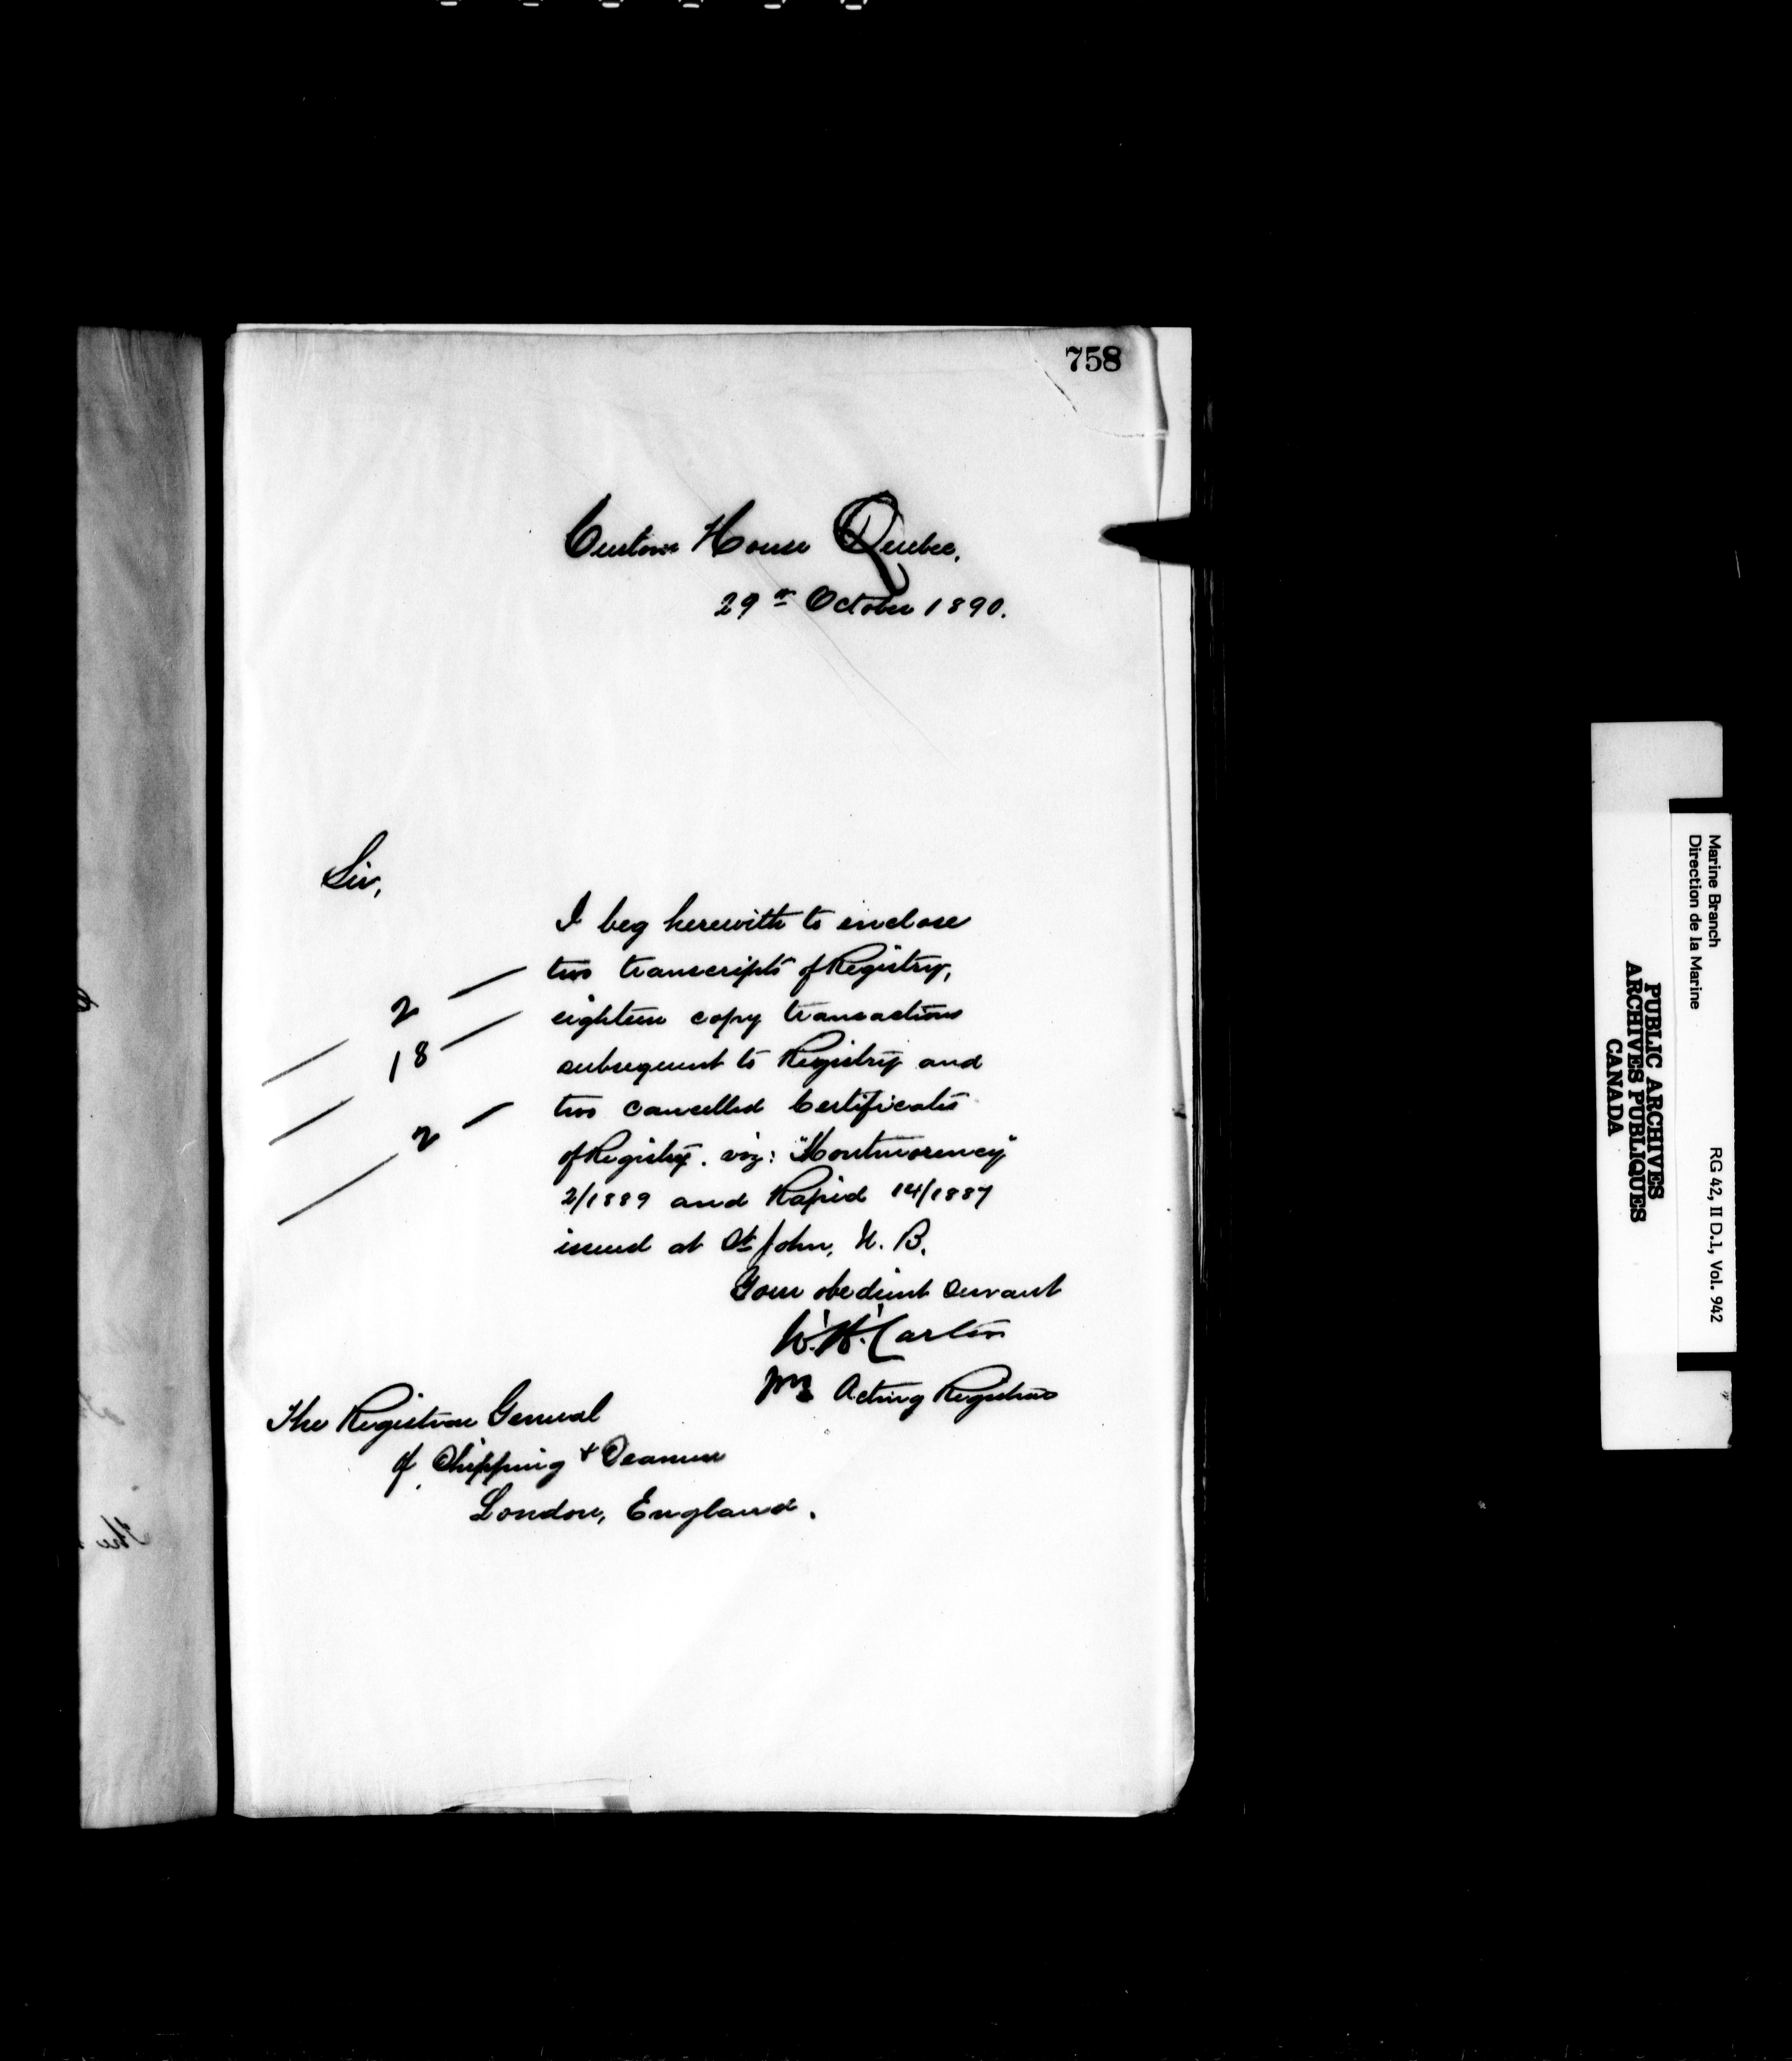 758
Custom House Quebec.
29th October 1890.
Sir,
I beg herewith to enclose
two transcripts of Registry,
2
eighteen copy transactions
18
subsequent to Registry and
two cancelled Certificates
2
of Registry. viz: "Montmorency"
2/1889 and Rapid 14/1887
issued at St John, N. B.
Your obedient Servant
W. H. Carter
Acting Registrar
The Registrar General
of Shipping & Seamen
London, England.
The
Marine Branch
Direction de la Marine
RG 42, II D.1, Vol. 942
PUBLIC ARCHIVES
ARCHIVES PUBLIQUES
CANADA